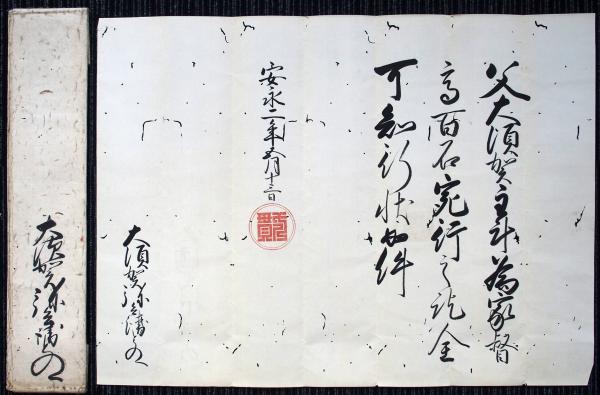 父大須賀主計為家督
高百石宛行之訖全
可知行状如件
安永二年五月十三日
大須賀弥三
大須賀